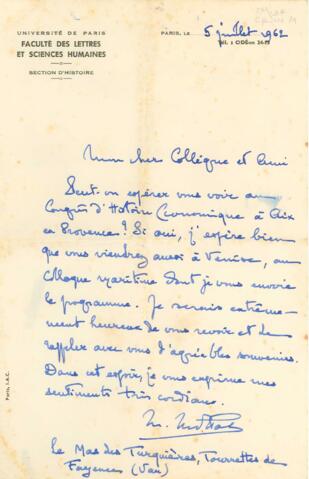 UNIVERSITÉ DE PARIS
FACULTÉ DES LETTRES
ET SCIENCES HUMAINES
SECTION D'HISTOIRE
PARIS, LE 5 juillet 1962
TÉL. : ODÉon 24-13
Mon cher Collègue et Ami
Peut-on espérer vous voir au
Congrès d'Histoire Économique à Aix
en Provence? Si oui, j'espère bien
que vous viendrez aussi à Venise, au
Colloque maritime dont je vous envoie
le programme. Je serais extrême-
ment heureux de vous revoir et de
rappeler avec vous d'agréables souvenirs.
Dans cet espoir, je vous exprime mes
sentiments très cordiaux.
M. Mollat
Le Mas des Turquières, Tourrettes de
Fayence (Var)
Paris, I.A.C.